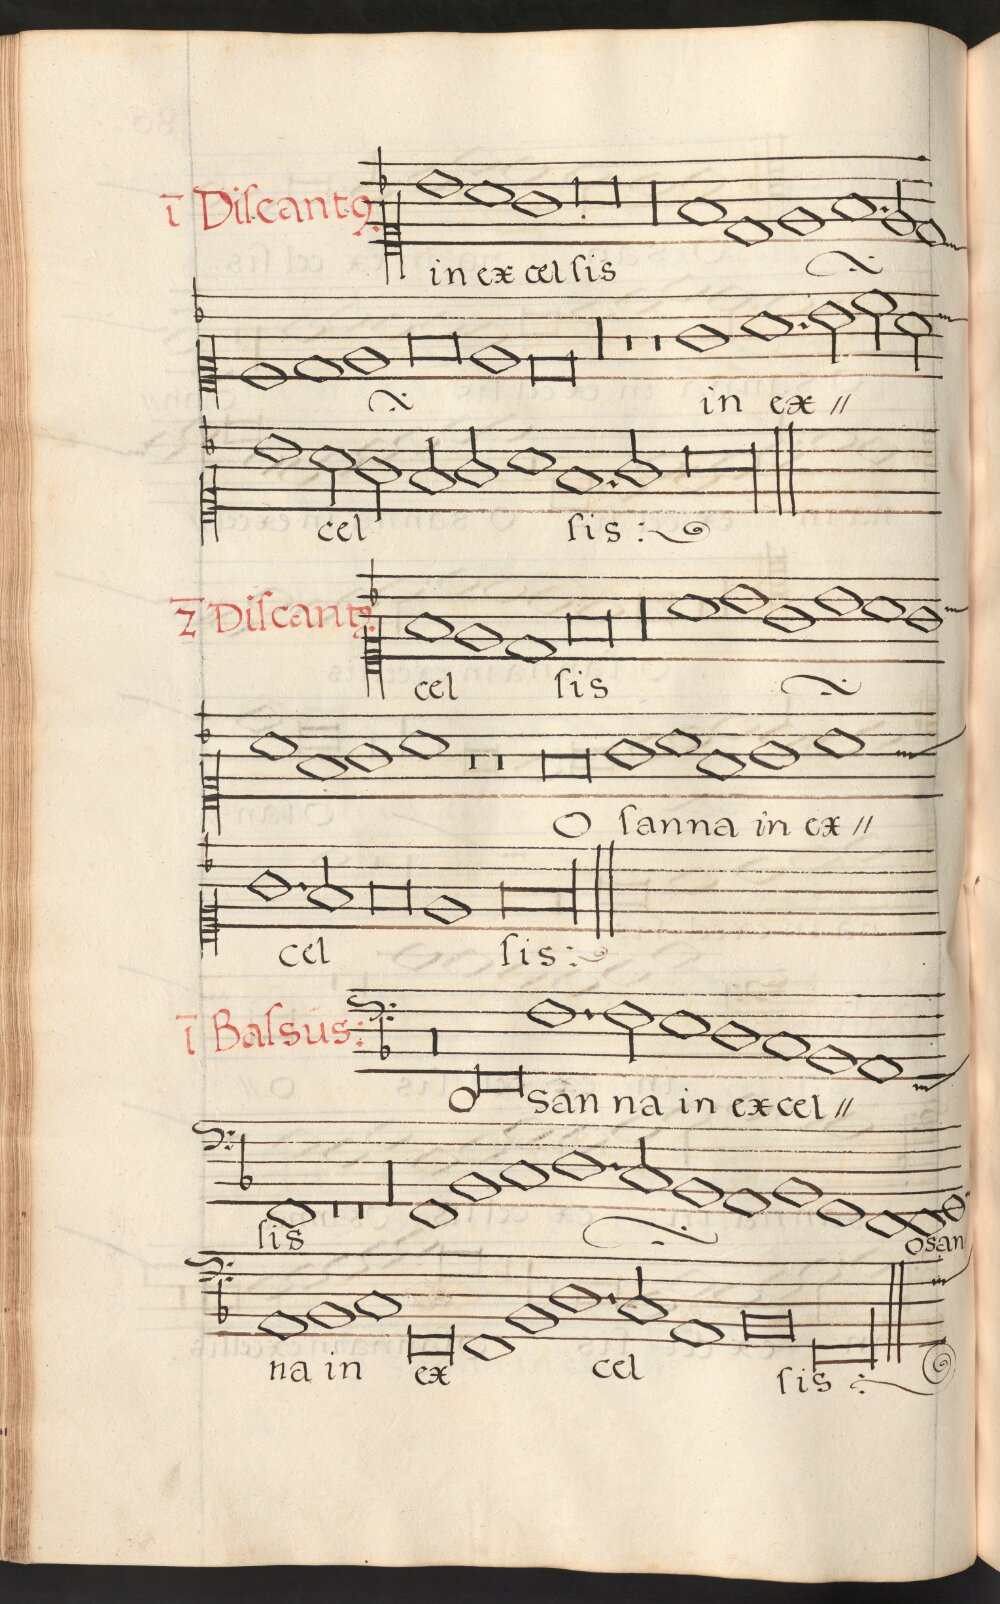 1 Discantꝰ
in excelsis
in ex //
cel sis :
2 Discantꝰ
cel sis
O sanna in ex //
cel sis :
1 Bassus:
O san na in excel //
sis osan
na in ex cel sis :